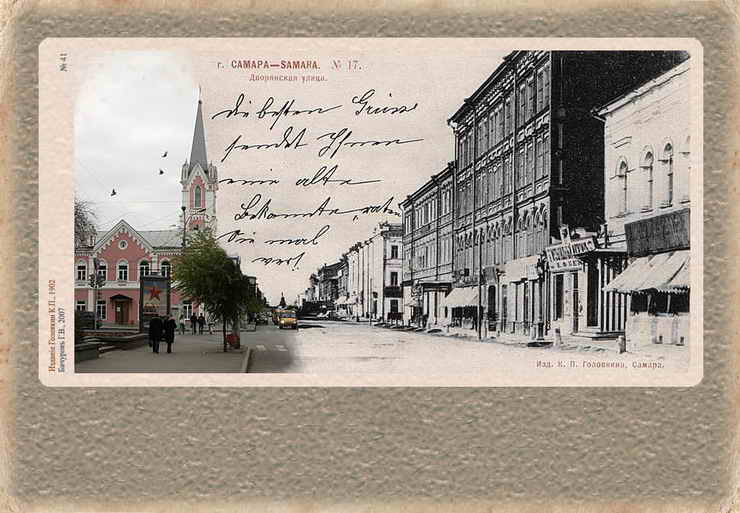 № 41
г. САМАРА—SAMARA. № 17.
Дворянская улица.
die besten Grüsse
sendet Ihnen
eine alte
Bekannte, raten
Sie mal
wer!
Изданiе Головкин К.П., 1902
Бичуровъ Г.В., 2007
Изд. К. П. Головкина, Самара.